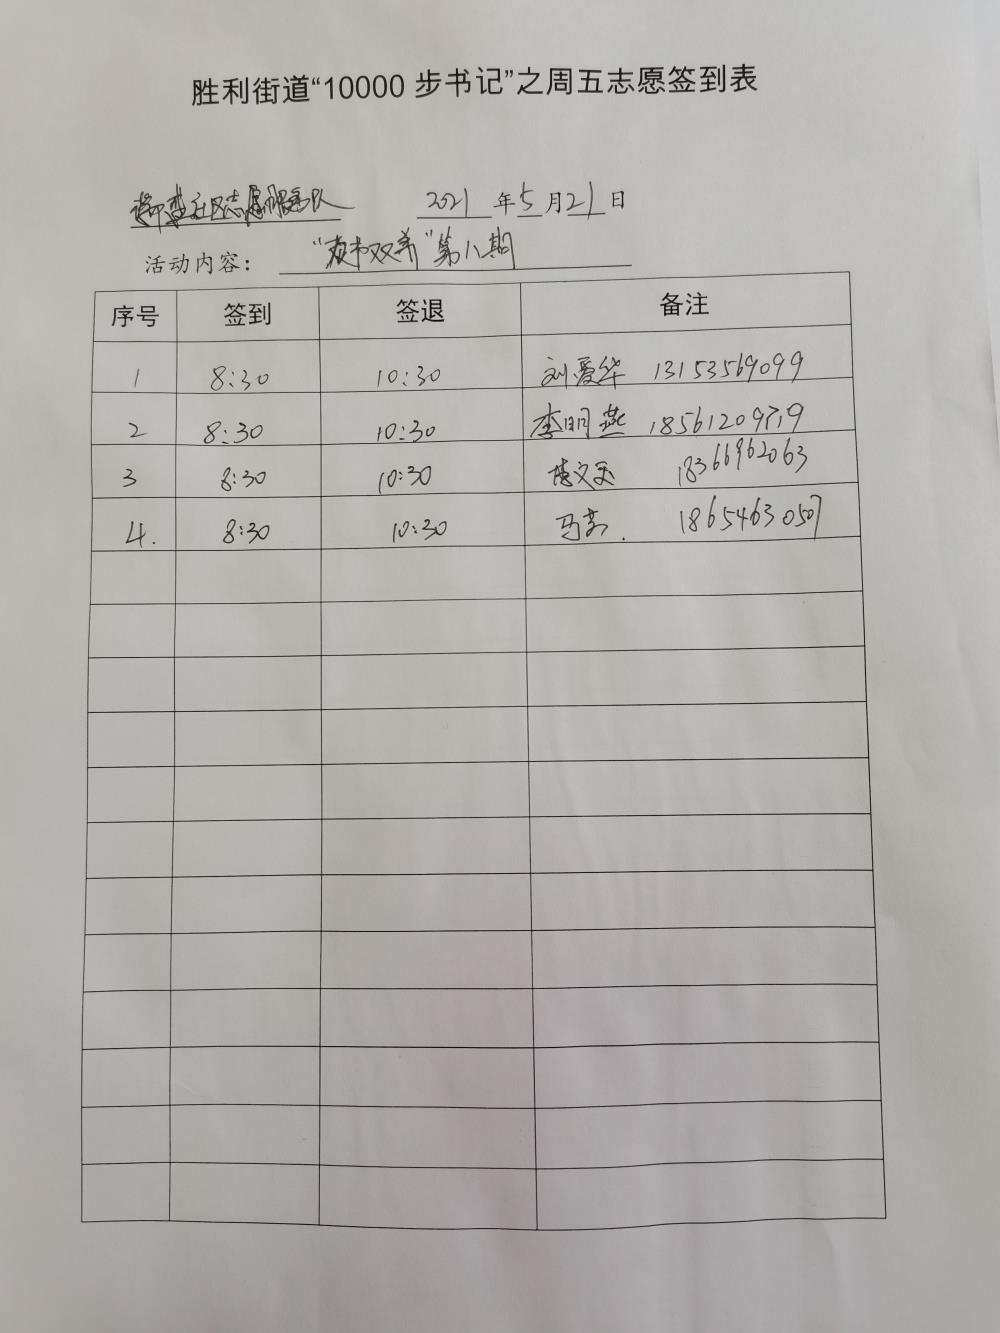 胜利街道“10000 步书记”之周五志愿签到表
社区志愿服务队 2021 年 5 月 21 日
活动内容： “ 双 ”第八期
序号 签到 签退 备注
1 8:30 10:30 刘爱华 13153569099
2 8:30 10:30 李明燕 18561209719
3 8:30 10:30 文玉 18366962063
4. 8:30 10:30 马 18654630507